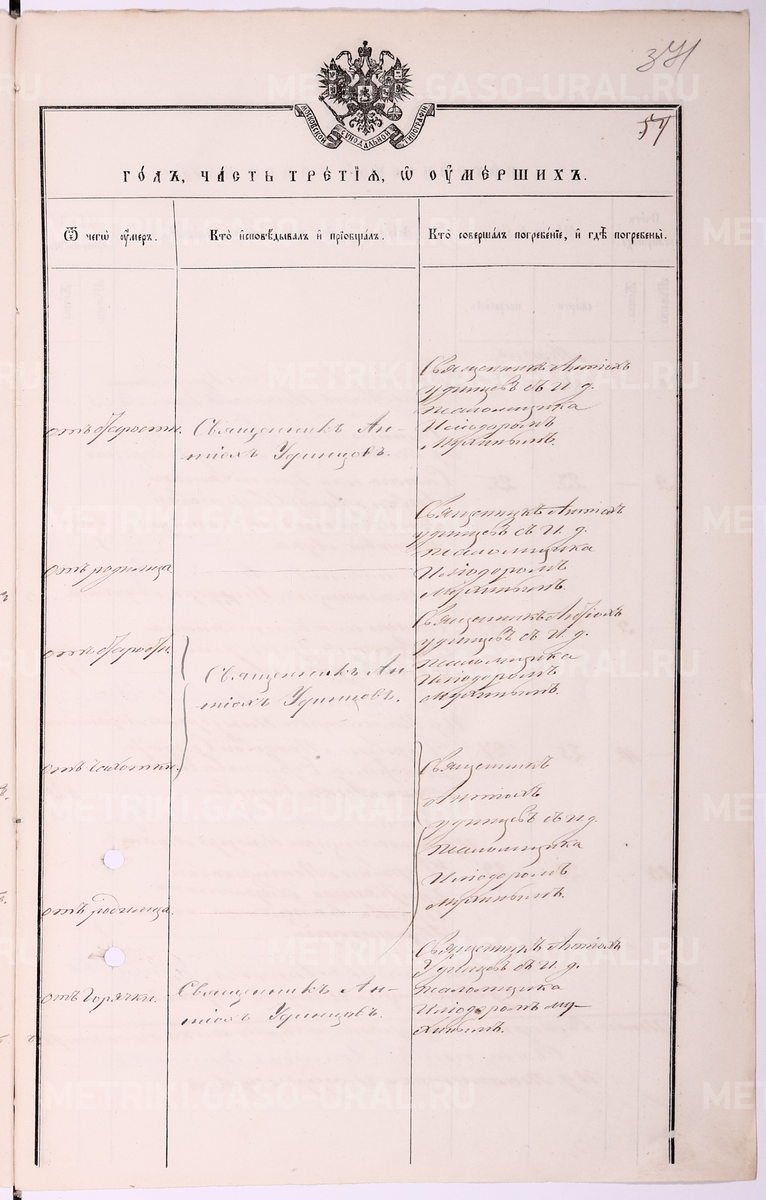 371
57
МОСКОВСКОЙ СѴНОДАЛЬНОЙ ТИПОГРАФІИ
ГО́ДЪ, ЧА́СТЬ ТРЕ́ТІѦ, Ѡ ОУ҆МЕ́РШИХЪ.
Ѿ чегѡ̀ оу҆́меръ.
Кто̀ и҆сповѣ́дывалъ и҆ прїѡбща́лъ.
Кто̀ соверша́лъ погребе́нїе, и҆ гдѣ̀ погребены̀.
отъ старости.
Священникъ Ан-
тіохъ Удинцовъ.
Священникъ Антіохъ
Удинцевъ съ И. д.
псаломщика
Иліодоромъ
Мухинымъ.
отъ родимца
Священникъ Антіохъ
Удинцевъ съ И. д.
псаломщика
Иліодоромъ
Мухинымъ.
отъ старости.
Священникъ Ан-
тіохъ Удинцовъ.
Священникъ Антіохъ
Удинцевъ съ И. д.
псаломщика
Иліодоромъ
Мухинымъ.
отъ чахотки.
Священникъ
Антіохъ
Удинцевъ съ И д.
псаломщика
Иліодоромъ
Мухинымъ.
отъ родимца.
отъ горячки.
Священникъ Ан-
тіохъ Удинцовъ.
Священникъ Антіохъ
Удинцевъ съ И. д.
псаломщика
Иліодоромъ Му-
хинымъ.
METRIKI.GASO-URAL.RU